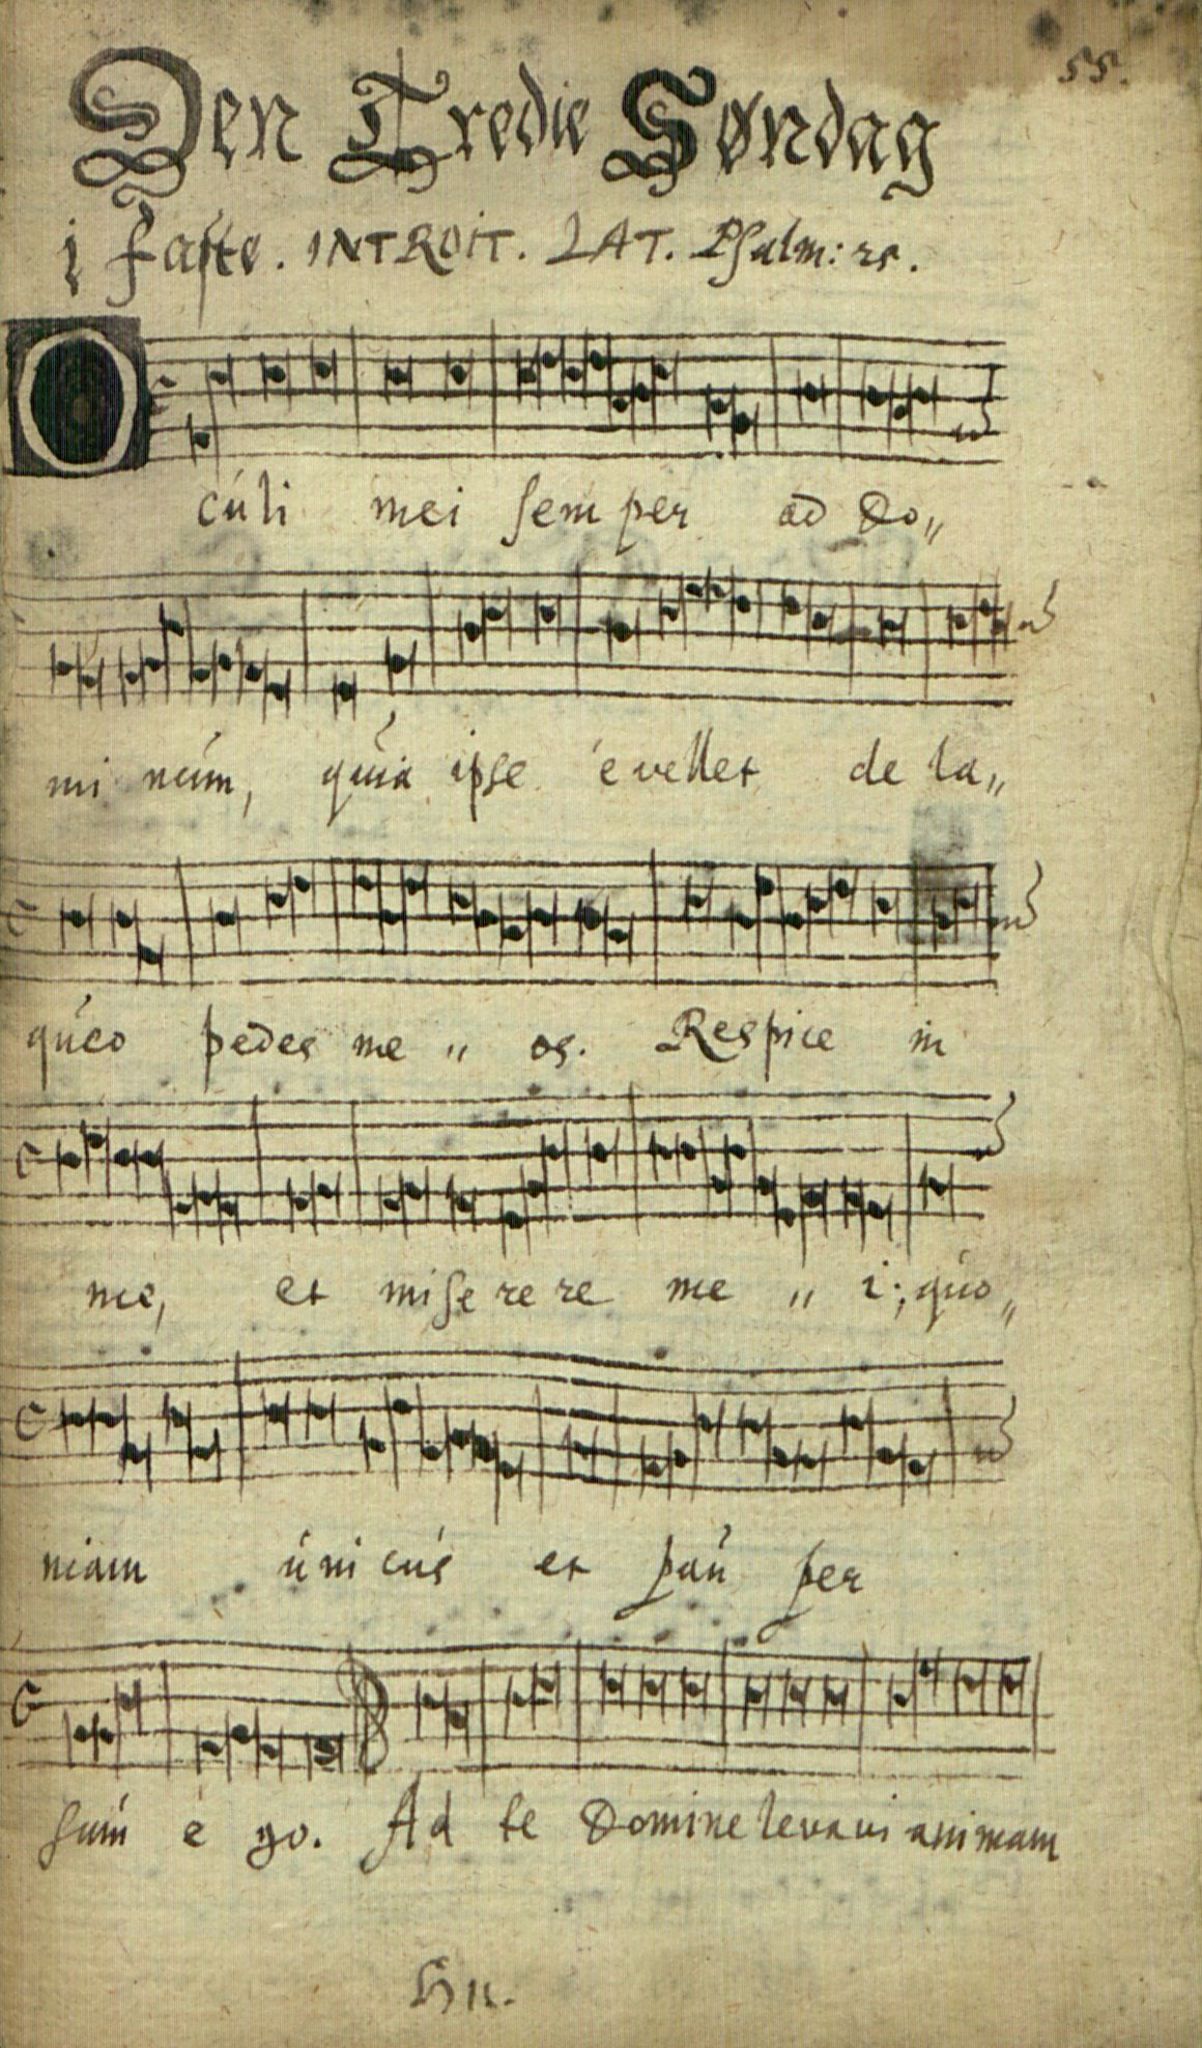 55.
Den Tredie Søndag
i faste. INTROIT. LAT. Psalm: 25.
Oculi mei semper ad Do„
mi núm, quia ipse evellet de la„
queo pedes me „ os. Respice in
me, et mise re re me „ i; quo„
niam únicús et paú per
súm e go. Ad te Domine levavi animam